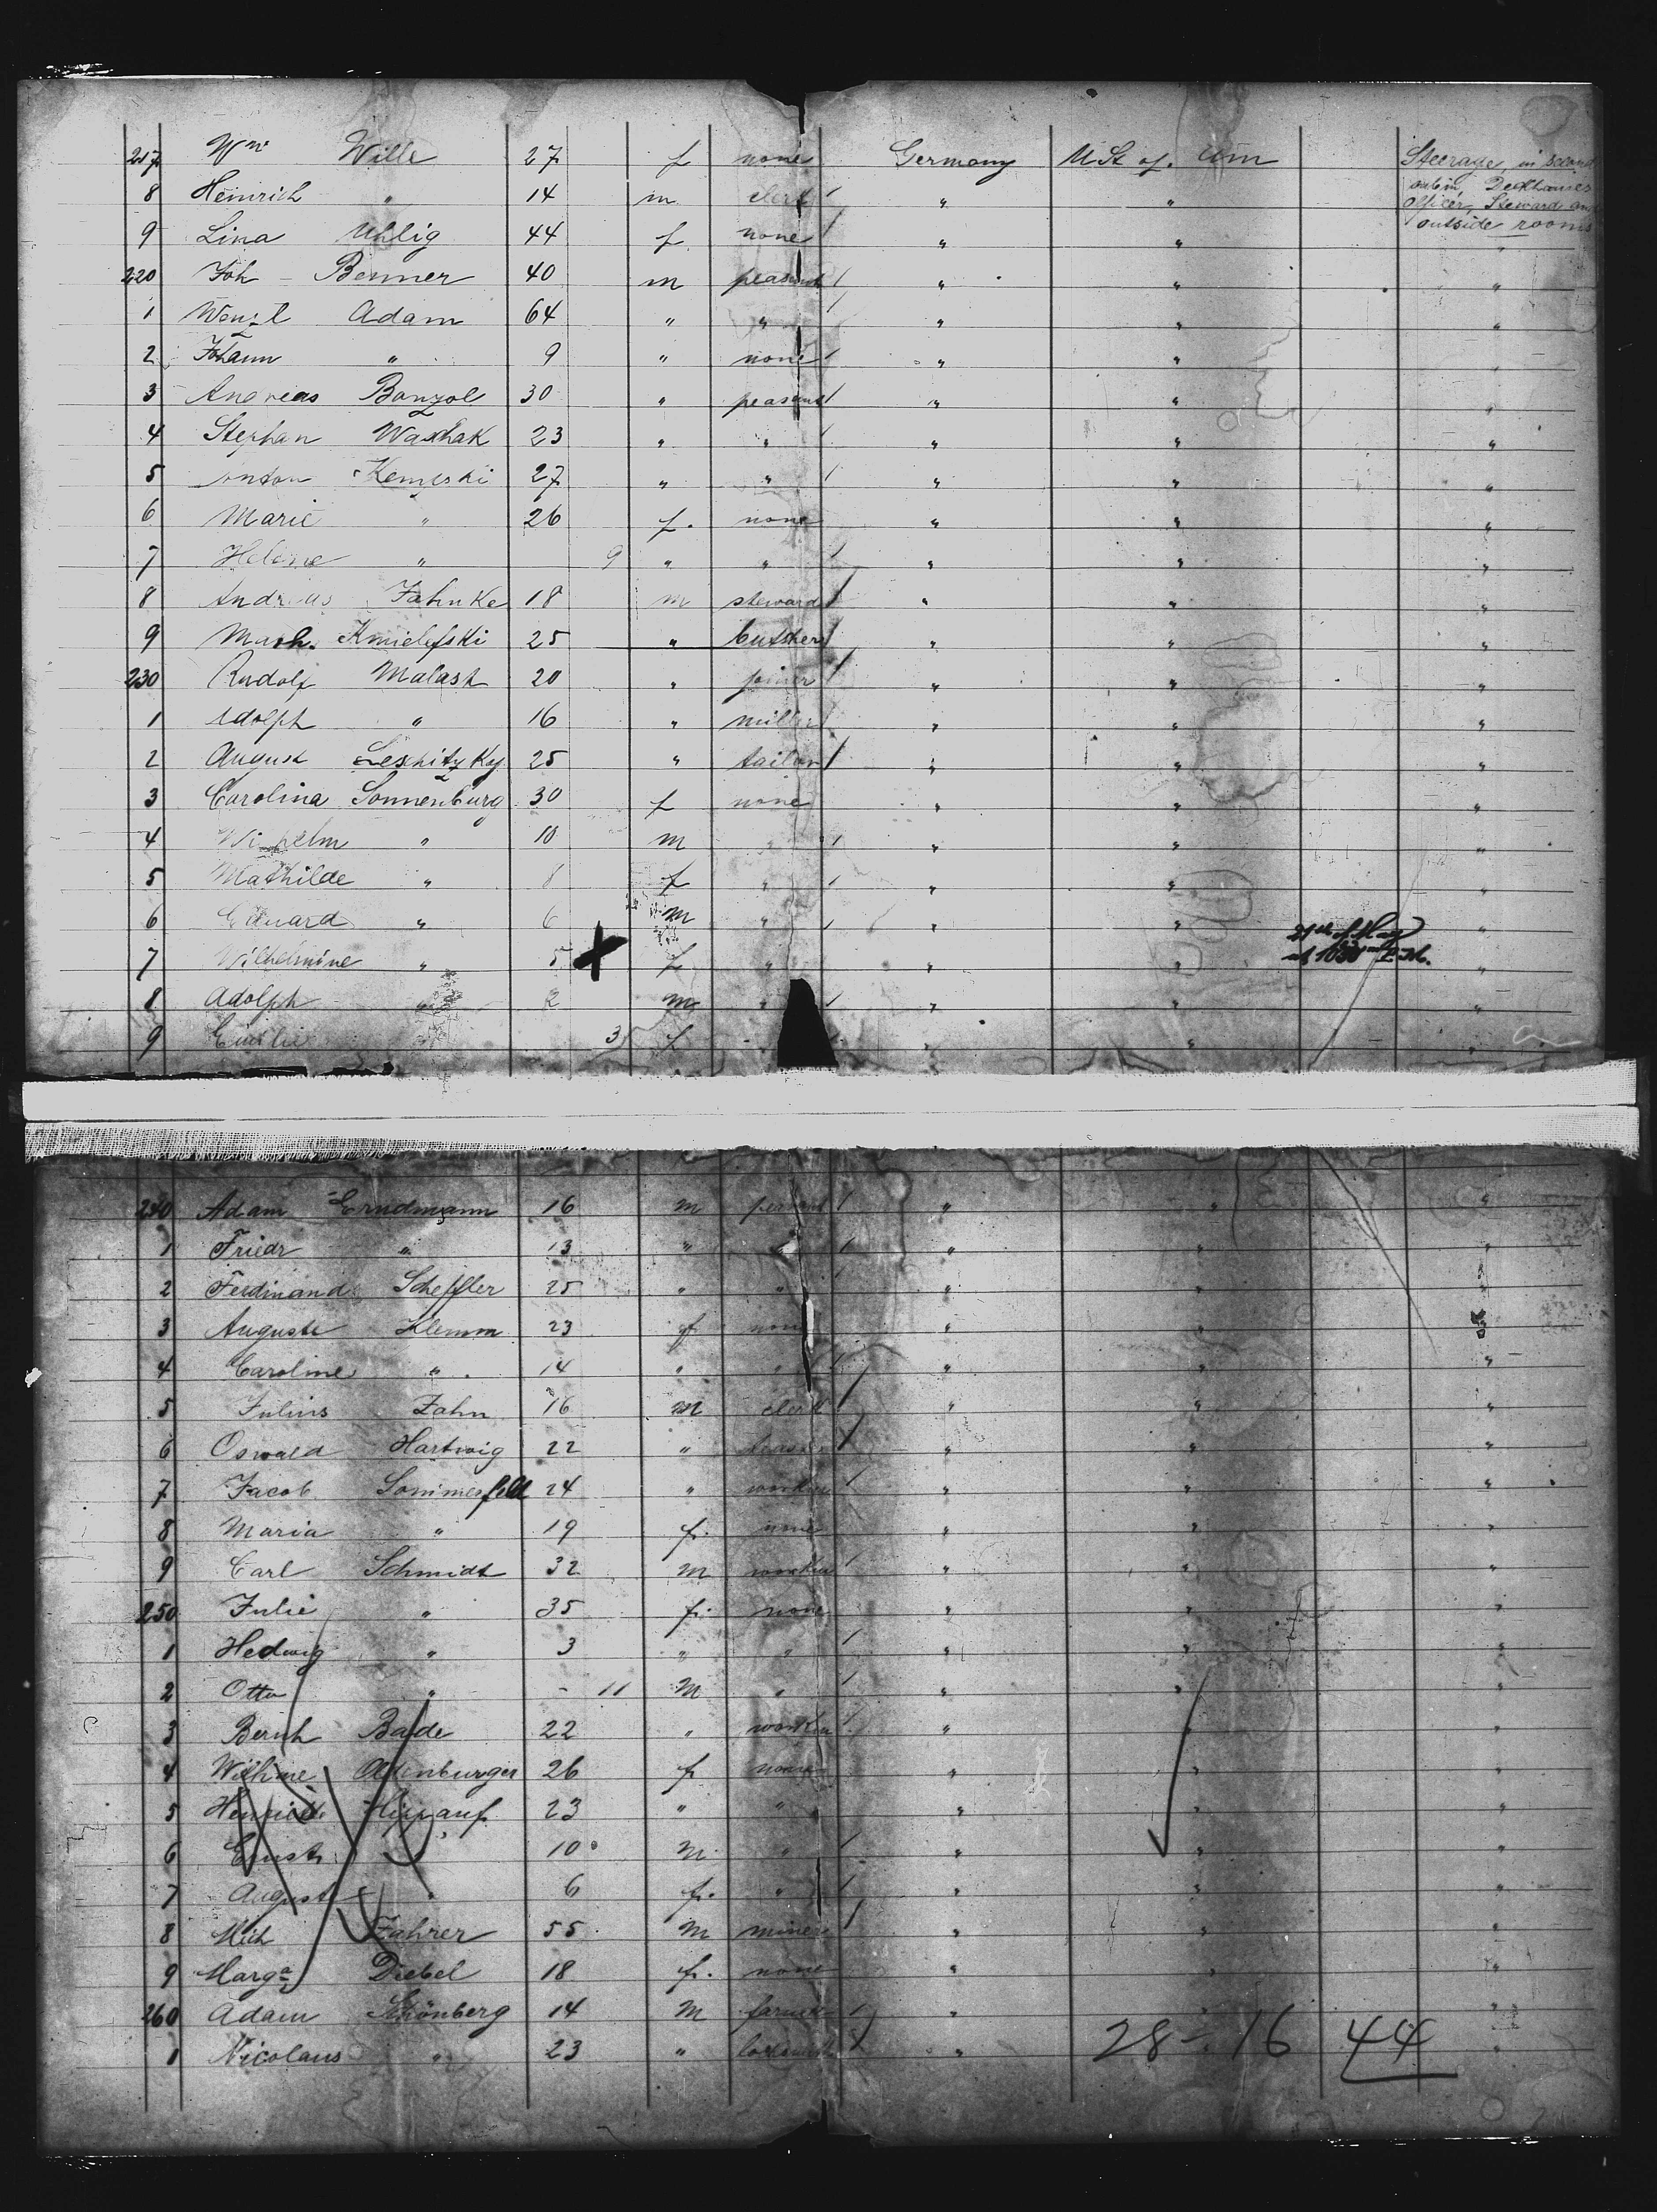 217 Wm Wille 27 f none Germany U St of Am Steerage in second
cabin, Deckhouses
officer, Steward and
outside rooms
8 Heinrich " 14 m clerk " "
9 Lina Uhlig 44 f none " " "
220 Joh Benner 40 m peasant " " "
1 Wenzl Adam 64 " " " " "
2 Johann " 9 " none " " "
3 Andreas Banzol 30 " peasant " " "
4 Stephan Washak 23 " " " " "
5 Anton Kempski 27 " " " " "
6 Marie " 26 f. none " " "
7 Helene " 9 " " " " "
8 Andreas Jahnke 18 m steward " " "
9 Mach. Kmielefski 25 " butcher " " "
230 Rudolf Malash 20 " joiner " " "
1 Adolph " 16 " miller " " "
2 August Leskitzky 25 " tailor " " "
3 Carolina Sonnenburg 30 f none " " "
4 Wilhelm " 10 m " " " "
5 Mathilde " 8 f " " " "
6 Eduard " 6 m " " " "
7 Wilhelmine " 5 f " " " 21st of May "
at 1030 P.M.
8 Adolph " 2 m " " " "
9 Emilie 3 f " " "
240 Adam Erndmann 16 m peasant " " "
1 Friedr " 13 " " " " "
2 Ferdinand Scheffler 25 " " " " "
3 Auguste Klemm 23 f none " "
4 Caroline " 14 " " " " "
5 Julius Zahn 16 m clerk " " "
6 Oswald Hartwig 22 " " " "
7 Jacob Sommerfeld 24 " worker " " "
8 Maria " 19 f. none " " "
9 Carl Schmidt 32 m worker " " "
250 Julie " 35 f. none " " "
1 Hedwig " 3 " " " " "
2 Otto " - 11 m " " " "
3 Bernh Bade 22 " worker " " "
4 Wilhme Oldenburger 26 f none " " "
5 Henriette 23 " " " " "
6 Ernst " 10 m " " " "
7 Auguste " 6 f. " " " "
8 Mich Zahrer 55 m miner " " "
9 Marga Diebel 18 f. none " " "
260 Adam Schönberg 14 m farmer " " "
1 Nicolaus " 23 " locksmith " 28 - 16 44 "